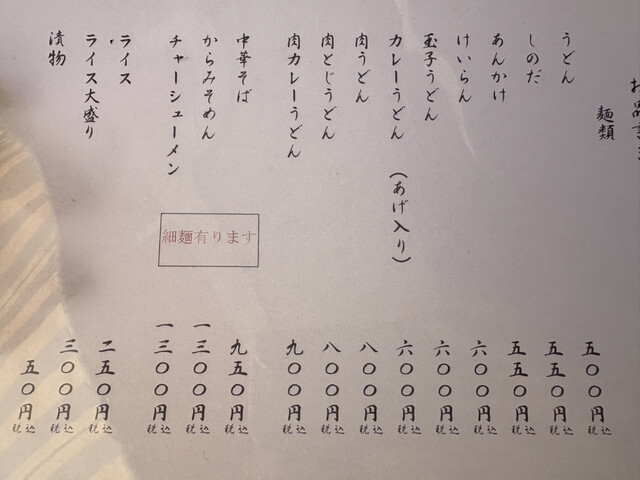 お品書き
麺類
うどん 五〇〇円税込
しのだ 五五〇円税込
あんかけ 五五〇円税込
けいらん 六〇〇円税込
玉子うどん 六〇〇円税込
カレーうどん（あげ入り） 六〇〇円税込
肉うどん 八〇〇円税込
肉とじうどん 八〇〇円税込
肉カレーうどん 九〇〇円税込
中華そば 九五〇円税込
からみそめん 一三〇〇円税込
チャーシューメン 一三〇〇円税込
細麺有ります
ライス 二五〇円税込
ライス大盛り 三〇〇円税込
漬物 五〇円税込